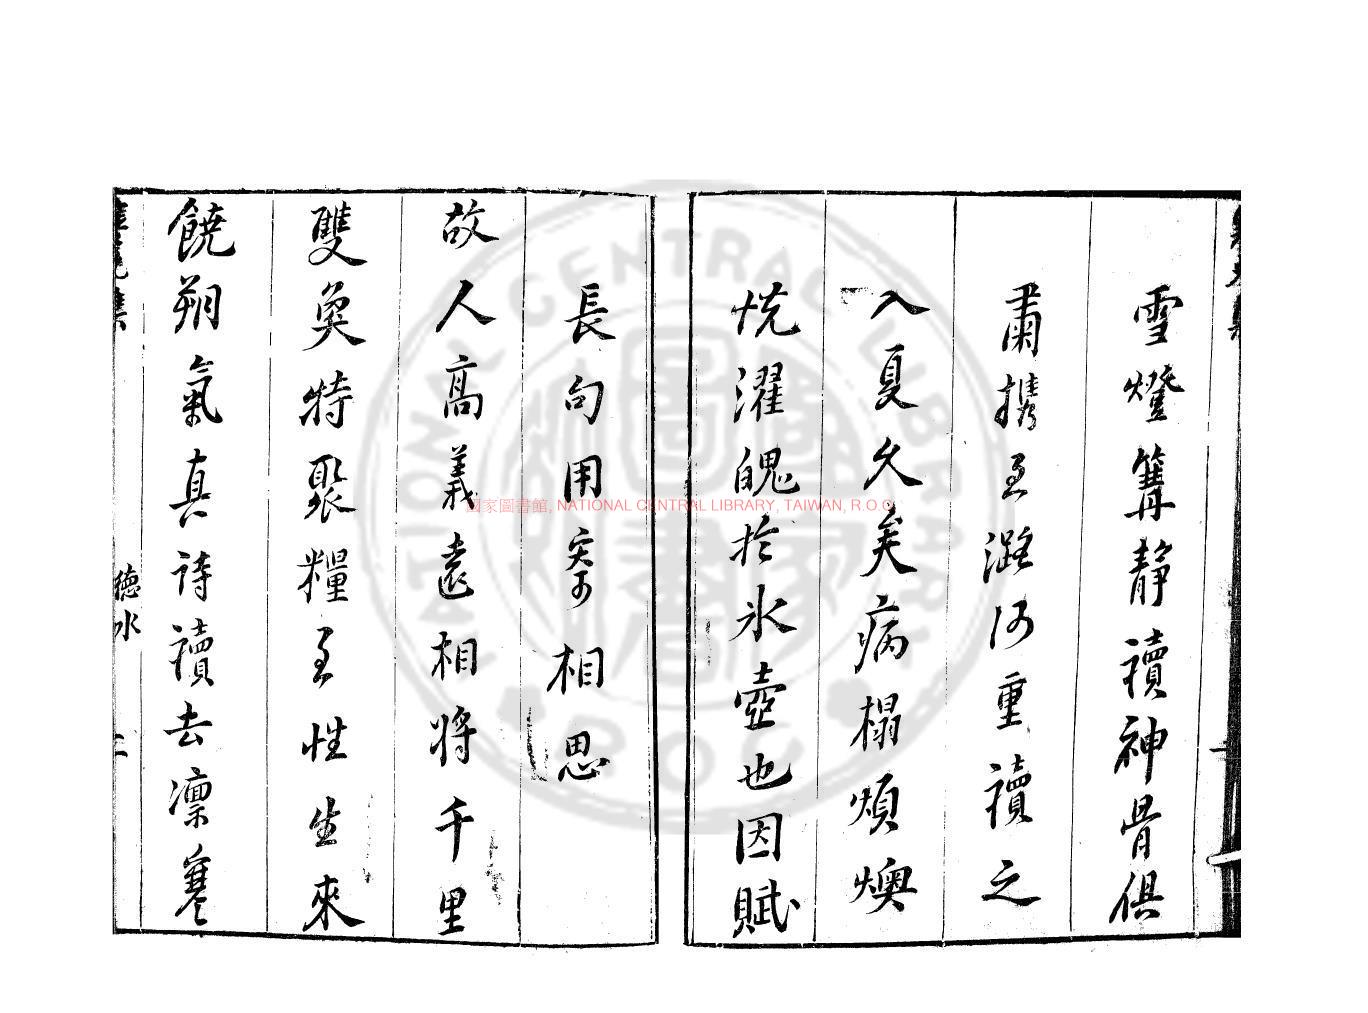 雪燈篝靜讀神骨俱
肅攜至潞河重讀之
入夏久矣病榻煩燠
恍濯魄於氷壺也因賦
長句用寄相思
故人高義遠相將千里
雙魚特裹糧至性生來
饒朔氣真詩讀去凜寒
德水 二
國家圖書館, NATIONAL CENTRAL LIBRARY, TAIWAN, R.O.C
NATIONAL CENTRAL LIBRARY